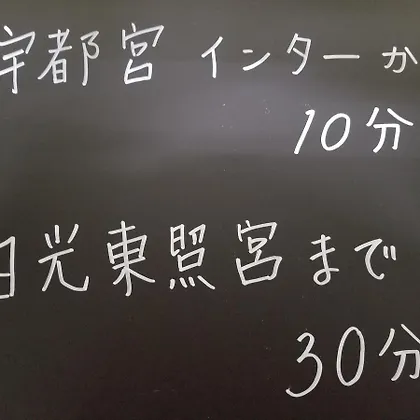 宇都宮 インターか
10分
日光東照宮まで
30分